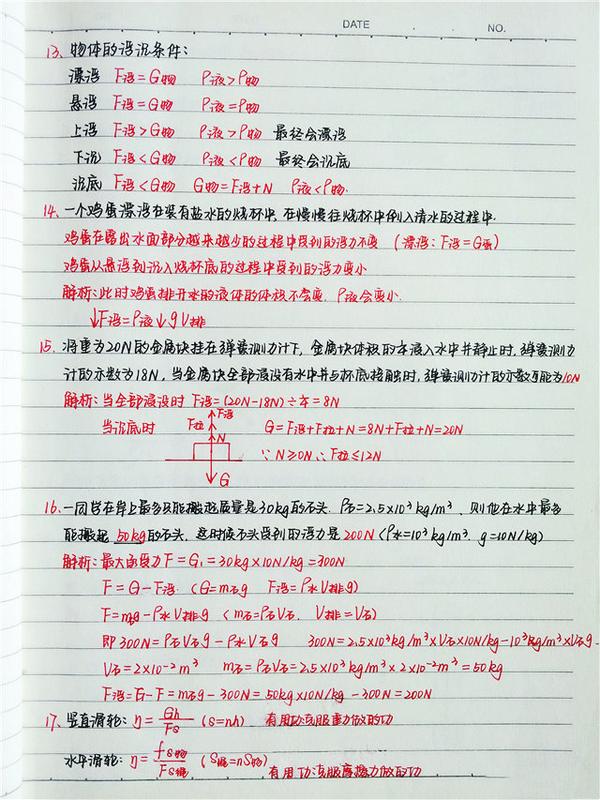 DATE
NO.
13. 物体的浮沉条件:
漂浮 F浮=G物 ρ液>ρ物
悬浮 F浮=G物 ρ液=ρ物
上浮 F浮>G物 ρ液>ρ物 最终会漂浮
下沉 F浮<G物 ρ液<ρ物 最终会沉底
沉底 F浮<G物 G物=F浮+N ρ液<ρ物.
14. 一个鸡蛋漂浮在装有盐水的烧杯中,在慢慢往烧杯中倒入清水的过程中.
鸡蛋在露出水面部分越来越少的过程中受到的浮力不变 (漂浮:F浮=G蛋)
鸡蛋从悬浮到沉入烧杯底的过程中受到的浮力变小
解析:此时鸡蛋排开水的液体的体积不会变,ρ液会变小.
↓F浮=ρ液↓gV排
15. 将重为20N的金属块挂在弹簧测力计下,金属块体积的 浸入水中并静止时,弹簧测力
计的示数为18N,当金属块全部浸没有水中并与杯底接触时,弹簧测力计的示数可能为10N
解析:当全部浸没时 F浮=(20N-18N)÷ =8N
当沉底时 F浮 F拉 N G G=F浮+F拉+N=8N+F拉+N=20N
∵N≥0N ∴F拉≤12N
16. 一同学在岸上最多只能搬起质量是30kg的石头.ρ石=2.5×10³kg/m³,则他在水中最多
能搬起 50kg的石头,这时候石头受到的浮力是200N(ρ水=10³kg/m³.g=10N/kg)
解析:最大承受力F=G₁=30kg×10N/kg=300N
F=G-F浮.(G=m石g F浮=ρ水V排g)
F=m石g-ρ水V排g (m石=ρ石V石. V排=V石)
即300N=ρ石V石g-ρ水V石g 300N=2.5×10³kg/m³×V石×10N/kg-10³kg/m³×V石g.
V石=2×10⁻²m³ m石=ρ石V石=2.5×10³kg/m³×2×10⁻²m³=50kg
F浮=G-F=m石g-300N=50kg×10N/kg-300N=200N
17. 竖直滑轮:η=Gh/Fs (s=nh) 有用功克服重力做的功
水平滑轮:η=fs物/Fs绳 (S绳=nS物) 有用功克服摩擦力做的功